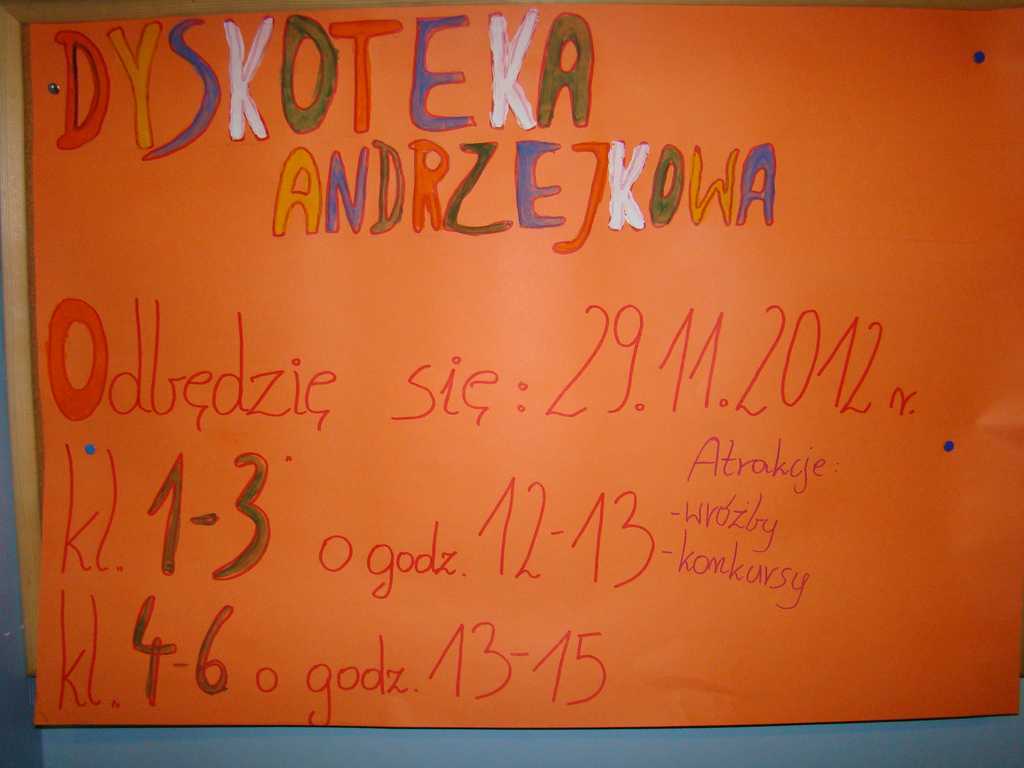 DYSKOTEKA
ANDRZEJKOWA
Odbędzię się: 29.11.2012 r.
kl. 1-3 o godz. 12-13
kl. 4-6 o godz. 13-15
Atrakcje:
-wróżby
-konkursy